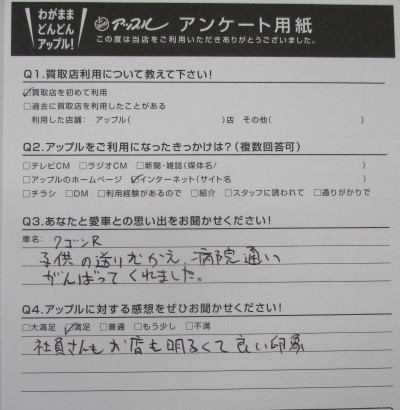 わがまま
どんどん
アップル！
アップル アンケート用紙
この度は当店をご利用いただきありがとうございました。
Q1.買取店利用について教えて下さい！
☑買取店を初めて利用
□過去に買取店を利用したことがある
利用した店舗： アップル( )店 その他( )
Q2.アップルをご利用になったきっかけは？(複数回答可)
□テレビCM □ラジオCM □新聞・雑誌(媒体名/ )
□アップルのホームページ ☑インターネット(サイト名 )
□チラシ □DM □利用経験があるので □紹介 □スタッフに誘われて □通りがかりで
Q3.あなたと愛車との思い出をお聞かせください！
車名： ワゴンR
子供の送りむかえ、病院通い
がんばってくれました。
Q4.アップルに対する感想をぜひお聞かせください！
□大満足 ☑満足 □普通 □もう少し □不満
社員さんもお店も明るくて良い印象